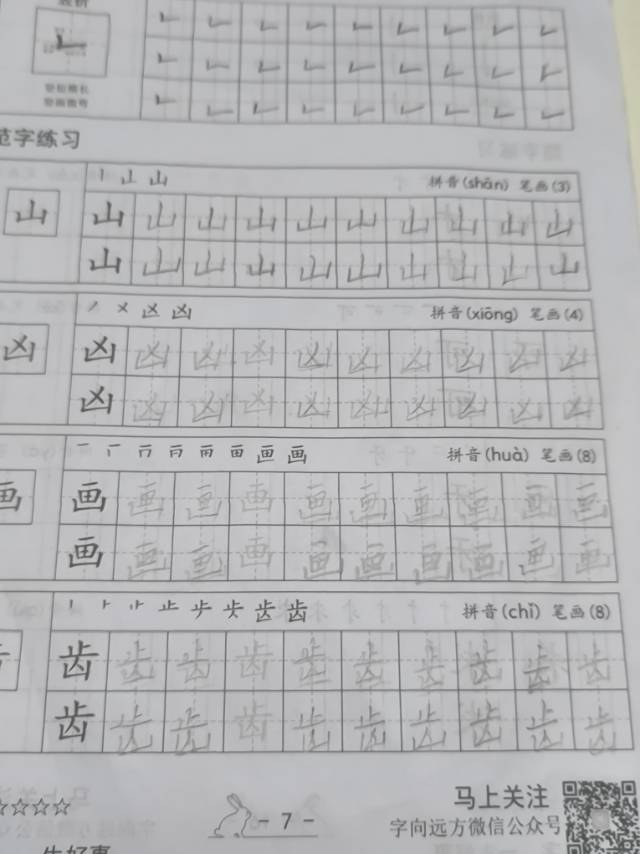 范字练习
山 拼音(shān) 笔画(3)
山 山 山 山 山 山 山 山 山 山 山
山 山 山 山 山 山 山 山 山 山
凶 凶 拼音(xiōng) 笔画(4)
凶 凶 凶 凶 凶 凶 凶 凶 凶 凶 凶
凶 凶 凶 凶 凶 凶 凶 凶 凶 凶
画 画 拼音(huà) 笔画(8)
画 画 画 画 画 画 画 画 画 画 画
画 画 画 画 画 画 画 画 画 画
止 齿 齿 拼音(chǐ) 笔画(8)
齿 齿 齿 齿 齿 齿 齿 齿 齿 齿
齿 齿 齿 齿 齿 齿 齿 齿 齿 齿
☆☆☆☆
- 7 -
马上关注
字向远方微信公众号